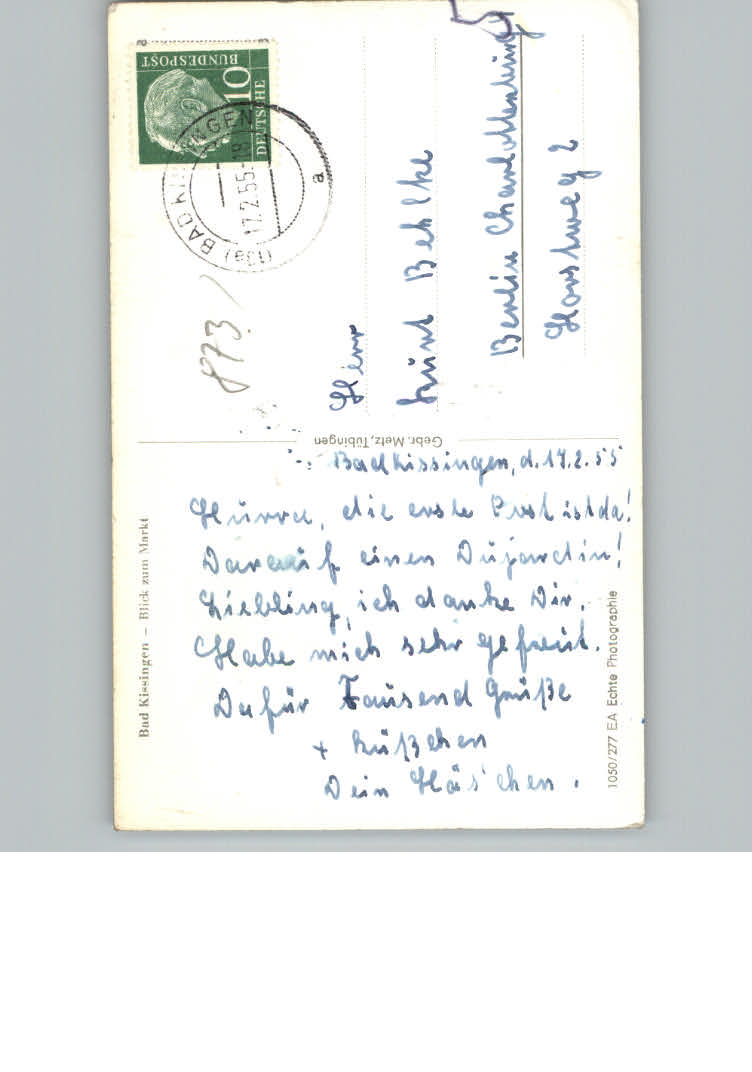 Bad Kissingen, d. 17.2.55
Hurra, die erste Post ist da!
Darauf einen Dujardin!
Liebling, ich danke Dir.
Habe mich sehr gefreut.
Dafür Tausend Grüße
+ Küßchen
Dein Häs'chen.
Herr
Kurt Behlke
Berlin Charlottenburg
Horstweg 2
5
873
DEUTSCHE
BUNDESPOST
10
(13a) BAD KISSINGEN
17.2.55-18
a
Gebr. Metz, Tübingen
Bad Kissingen – Blick zum Markt
1050/277 EA Echte Photographie